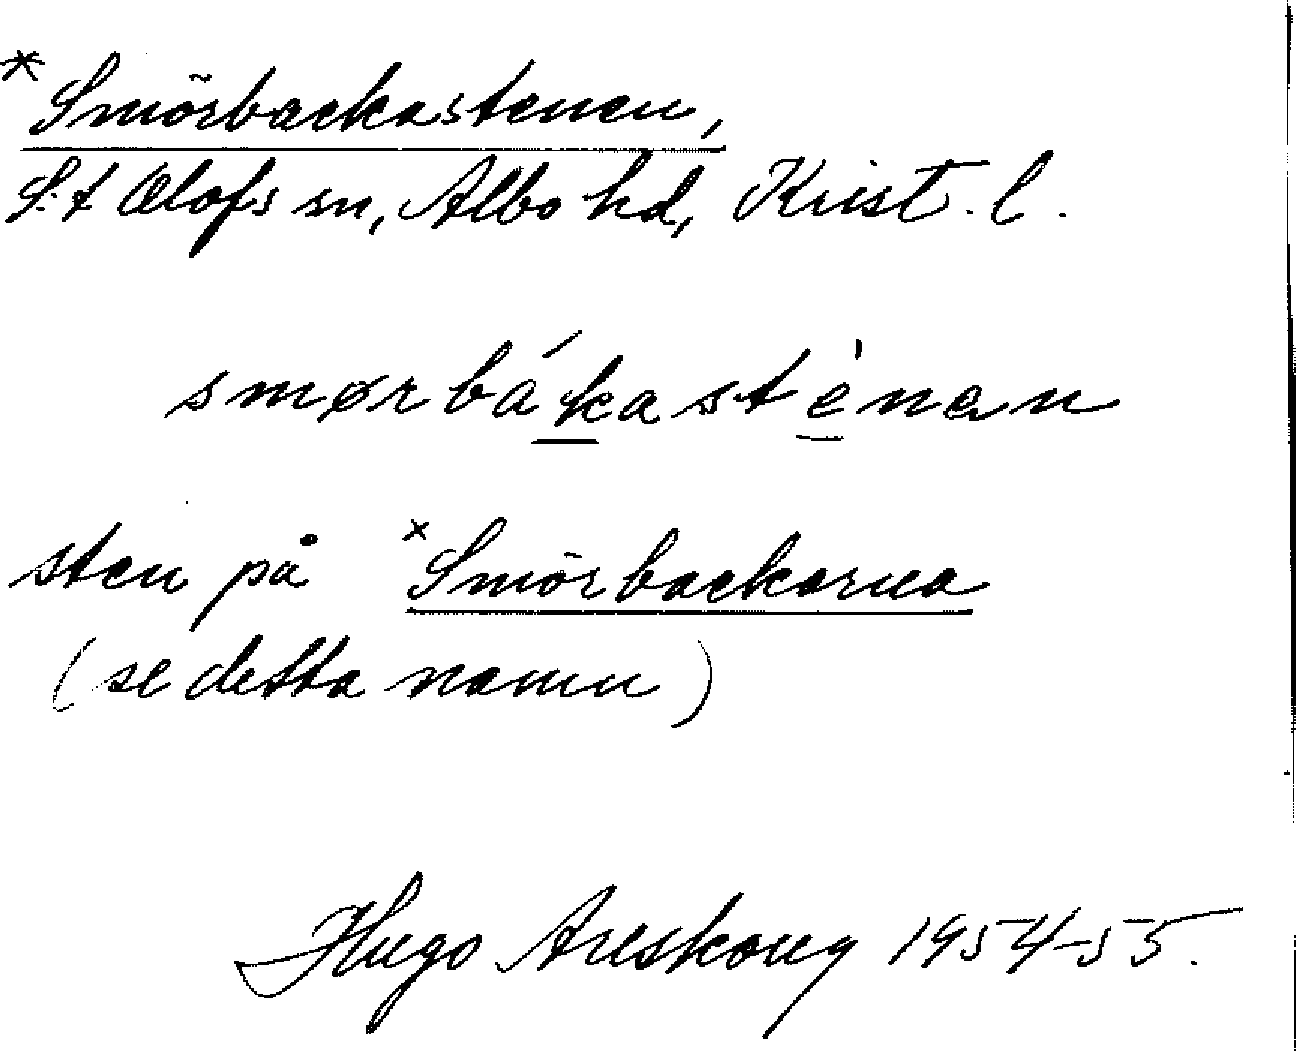 *Smörbackastenen,
S:t Olofs sn, Albo hd, Krist. l.
smørbákastènan
sten på *Smörbackarna
(se detta namn)
Hugo Areskoug 1954-55.